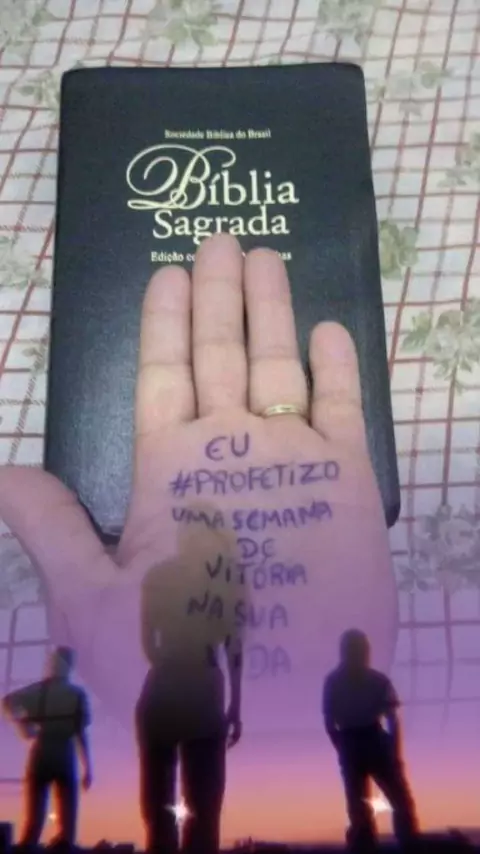 Sociedade Bíblica do Brasil
Bíblia
Sagrada
Edição
EU
#PROFETIZO
UMA SEMANA
DE
VITÓRIA
NA SUA
VIDA